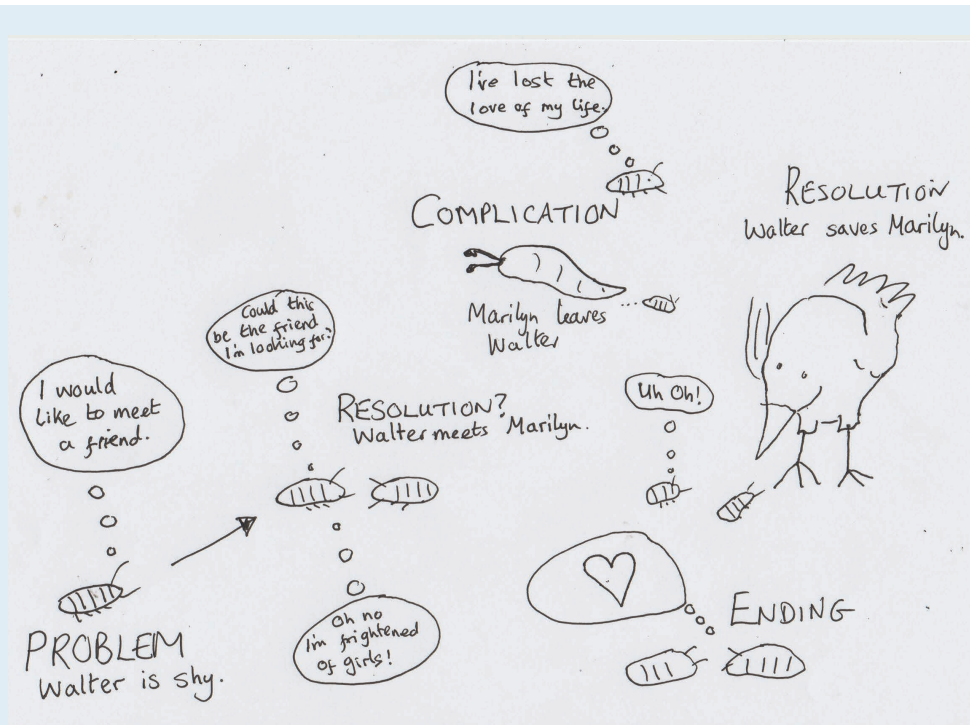 I would
like to meet
a friend.
PROBLEM
Walter is shy.
Could this
be the friend
I'm looking for?
RESOLUTION?
Walter meets Marilyn.
Oh no
I'm frightened
of girls!
I've lost the
love of my life.
COMPLICATION
Marilyn leaves
Walter
RESOLUTION
Walter saves Marilyn.
Uh Oh!
ENDING